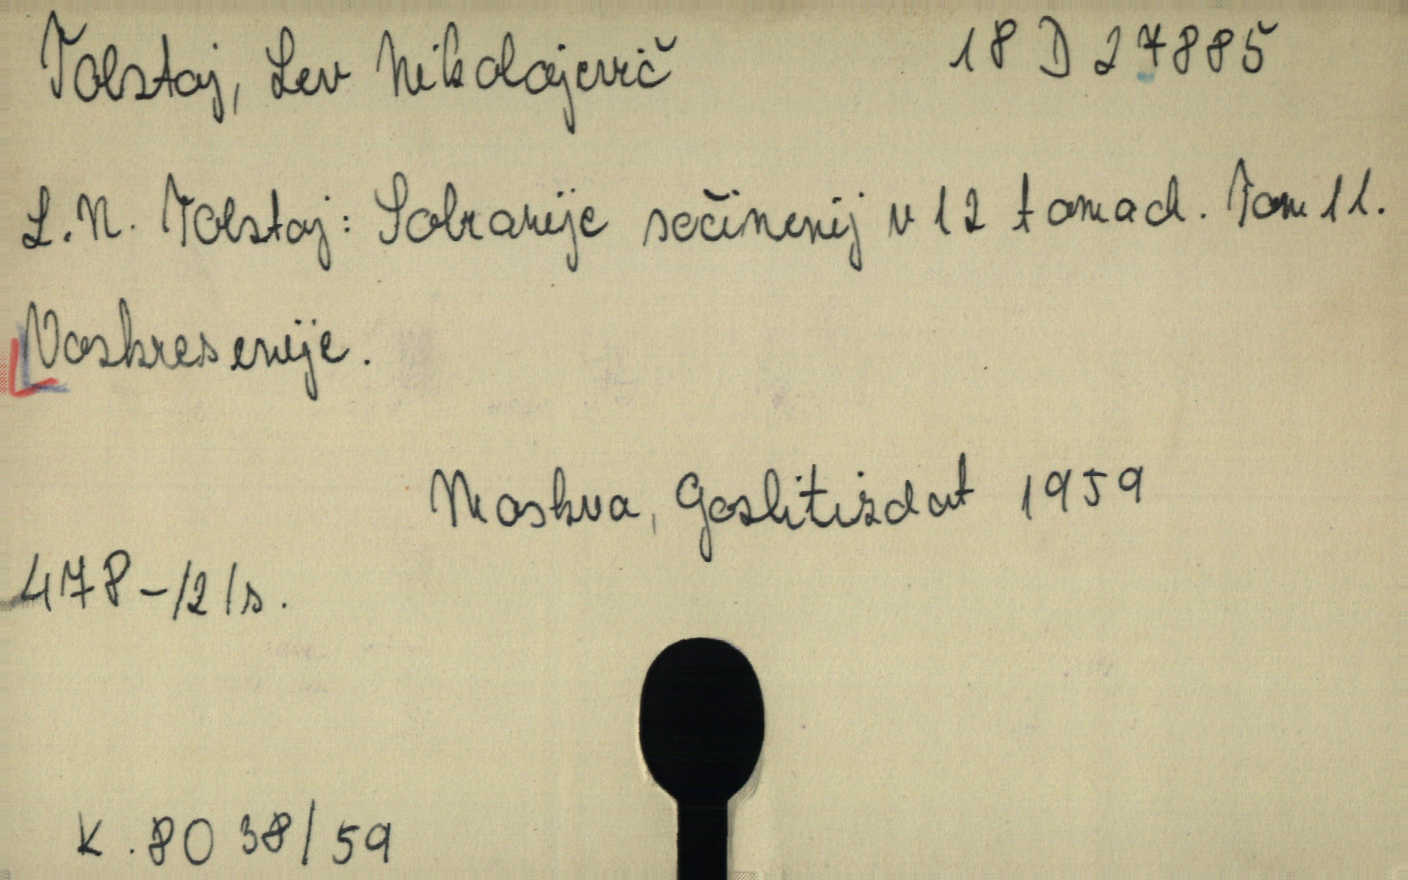 Tolstoj, Lev Nikolajevič 18 D 27885
L.N. Tolstoj: Sobranije sočinenij v 12 tomach. Tom 11.
Voskresenije.
Moskva, Goslitizdat 1959
478-/2/s.
K.8038/59